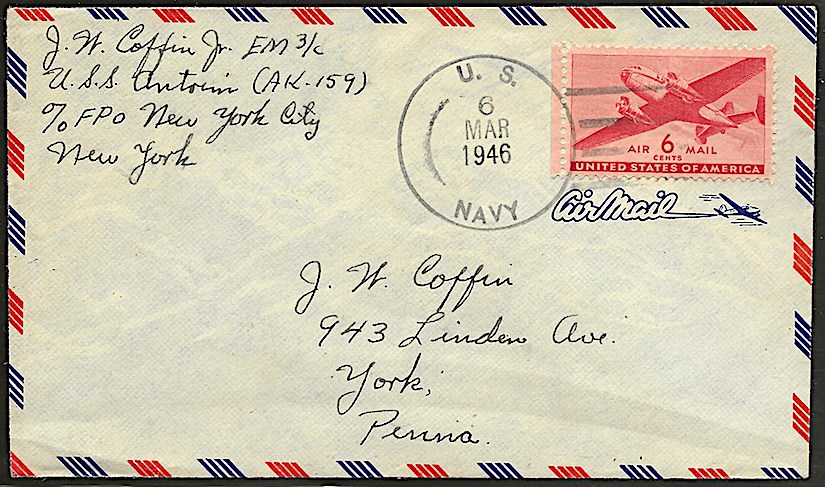 J. W. Coffin Jr. EM 3/c
U.S.S. Antrim (AK-159)
℅ FPO New York City
New York
U. S.
6
MAR
1946
NAVY
AIR 6 MAIL
CENTS
UNITED STATES OF AMERICA
Air Mail
J. W. Coffin
943 Linden Ave.
York,
Penna.